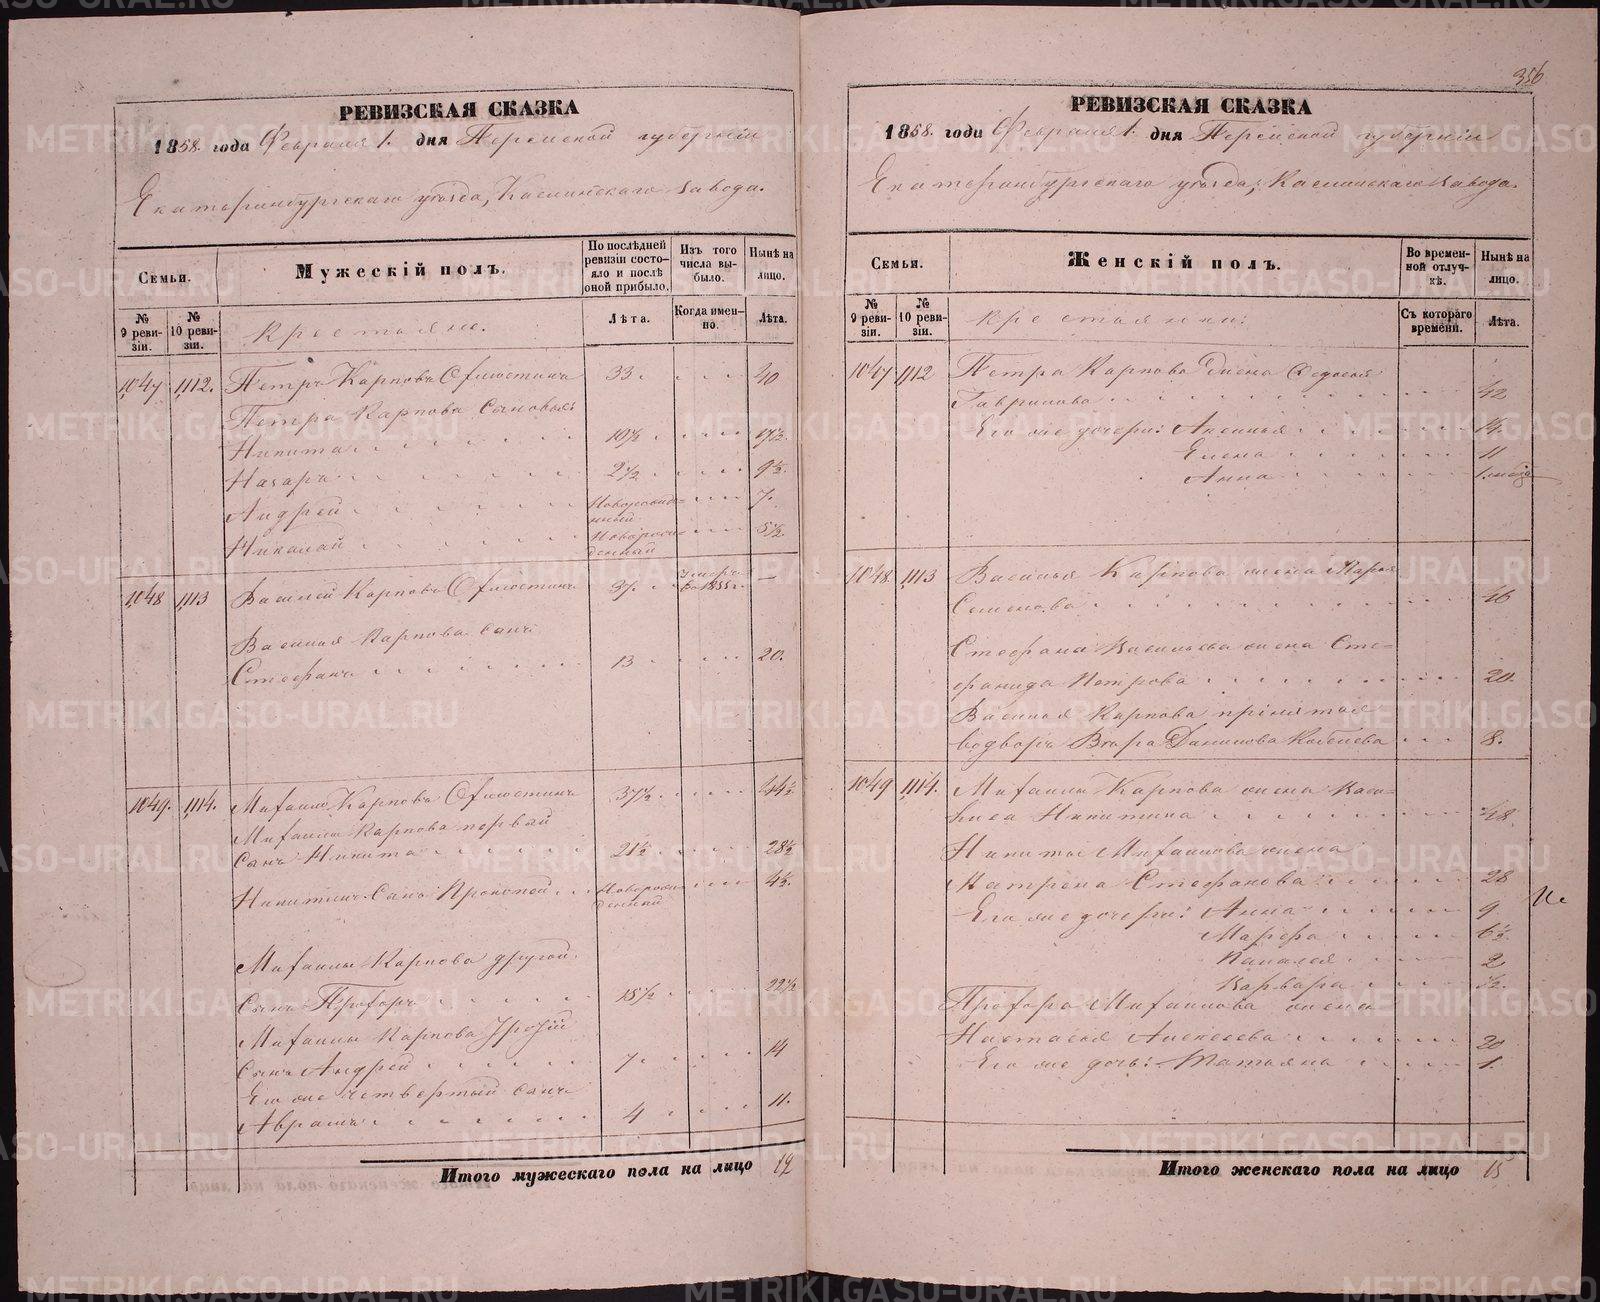 356
РЕВИЗСКАЯ СКАЗКА
1858. года Февраля 1. дня Пермской губернии
Екатеринбургскаго уѣзда, Каслинскаго завода.
Семьи.
Мужескій полъ.
По послѣдней ревизіи состояло и послѣ оной прибыло.
Изъ того числа выбыло.
Нынѣ на лицо.
№ 9 ревизіи.
№ 10 ревизіи.
Крестьяне.
Лѣта.
Когда именно.
Лѣта.
1047 1112. Петръ Карповъ 33 40
Петра Карпова сыновья:
Никита 10½ 17½
Назаръ 2½ 9½
Андрей Новорожденный 7.
Николай Новорожденный 5½
1048 1113 Василей Карповъ 37 умеръ въ 1855 г. —
Василья Карпова сынъ
Стефанъ 13 20.
1049. 1114. Михаило Карповъ 37½ 44½
Михаилы Карпова первый
сынъ Никита 21½ 28½
Никитинъ сынъ Прокопей Новорожденный 4½
Михаилы Карпова другой
сынъ Прохоръ 15½ 22½
Михаилы Карпова третій
сынъ Андрей 7. 14
Его же четвертый сынъ
Аврамъ 4 11.
Итого мужескаго пола на лицо 12
РЕВИЗСКАЯ СКАЗКА
1858. года Февраля 1. дня Пермской губернии
Екатеринбургскаго уѣзда, Каслинскаго завода.
Семьи.
Женскій полъ.
Во временной отлучкѣ.
Нынѣ на лицо.
№ 9 ревизіи.
№ 10 ревизіи.
Крестьянки:
Съ котораго времени.
Лѣта.
1047 1112 Петра Карпова жена Федосья
Гаврилова 42
Его же дочери: Аксинья 14.
Елена 11
Анна
1048. 1113 Василья Карпова жена Марья
Семенова 46
Стефана Васильева жена Сте-
фанида Петрова 20.
Василья Карпова принятая
Данилова 8.
1049 1114. Михаилы Карпова жена Васи-
лиса Никитина 48.
Никиты Михаилова жена
Матрена Стефанова 28
Его же дочери: Анна 9
Марфа 6½
2
Варвара ½.
Прохора Михаилова жена
Настасья Алексеева 20
Его же дочь: Татьяна 1.
Итого женскаго пола на лицо 15
METRIKI.GASO-URAL.RU